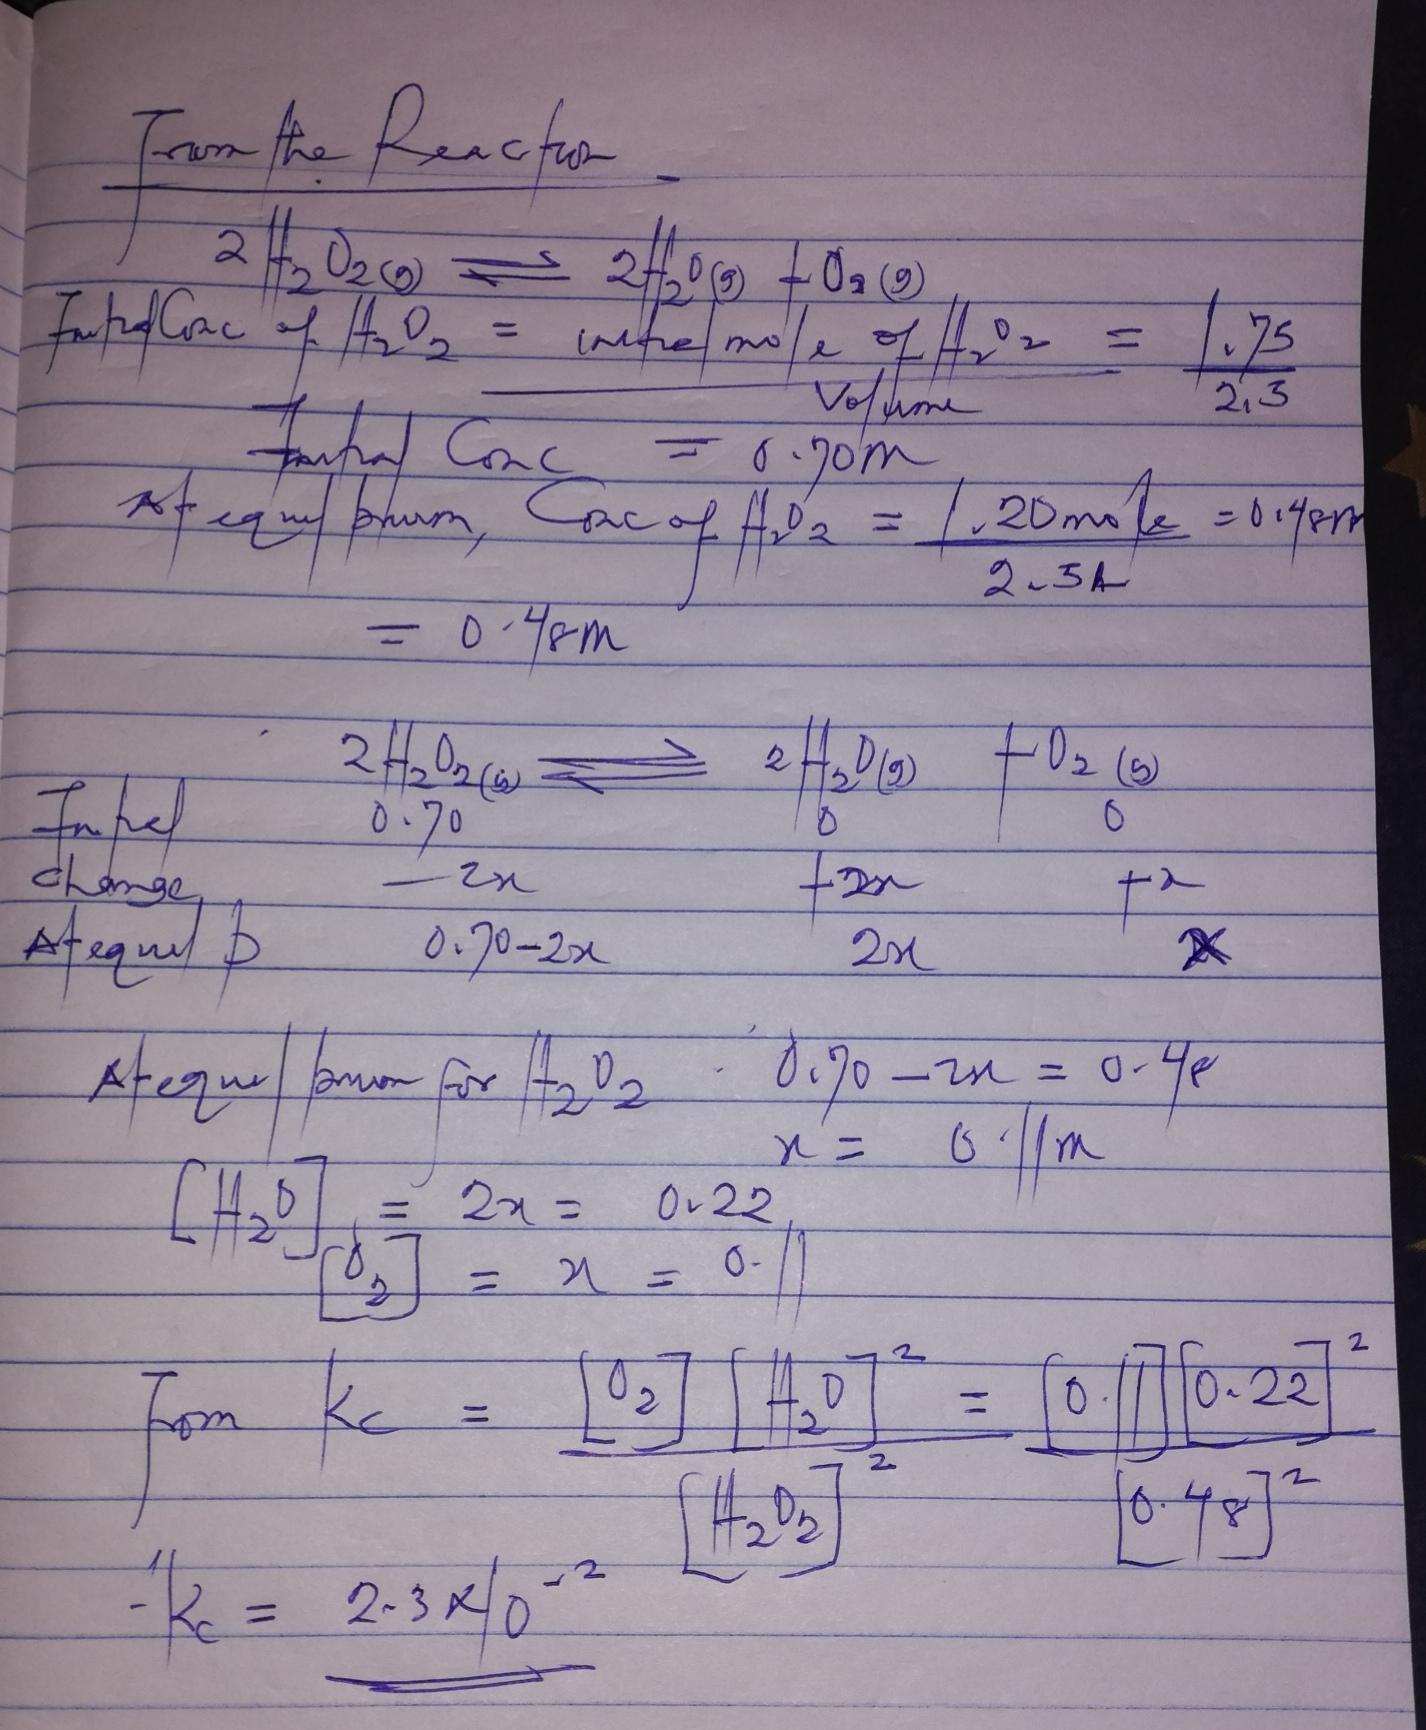 From the Reaction
2H₂O₂(g) ⇌ 2H₂O(g) + O₂(g)
Initial Conc of H₂O₂ = initial mole of H₂O₂ = 1.75
Volume 2.5
Initial Conc = 0.70m
At equilibrium, Conc of H₂O₂ = 1.20mole = 0.48m
2.5
= 0.48m
2H₂O₂(g) ⇌ 2H₂O(g) + O₂(g)
Initial 0.70 0 0
change -2x +2x +x
At equilb 0.70-2x 2x x
At equilibrium for H₂O₂ 0.70 - 2x = 0.48
x = 0.11m
[H₂O] = 2x = 0.22
[O₂] = x = 0.11
From Kc = [O₂] [H₂O]² = [0.11][0.22]²
[H₂O₂]² [0.48]²
Kc = 2.3×10⁻²